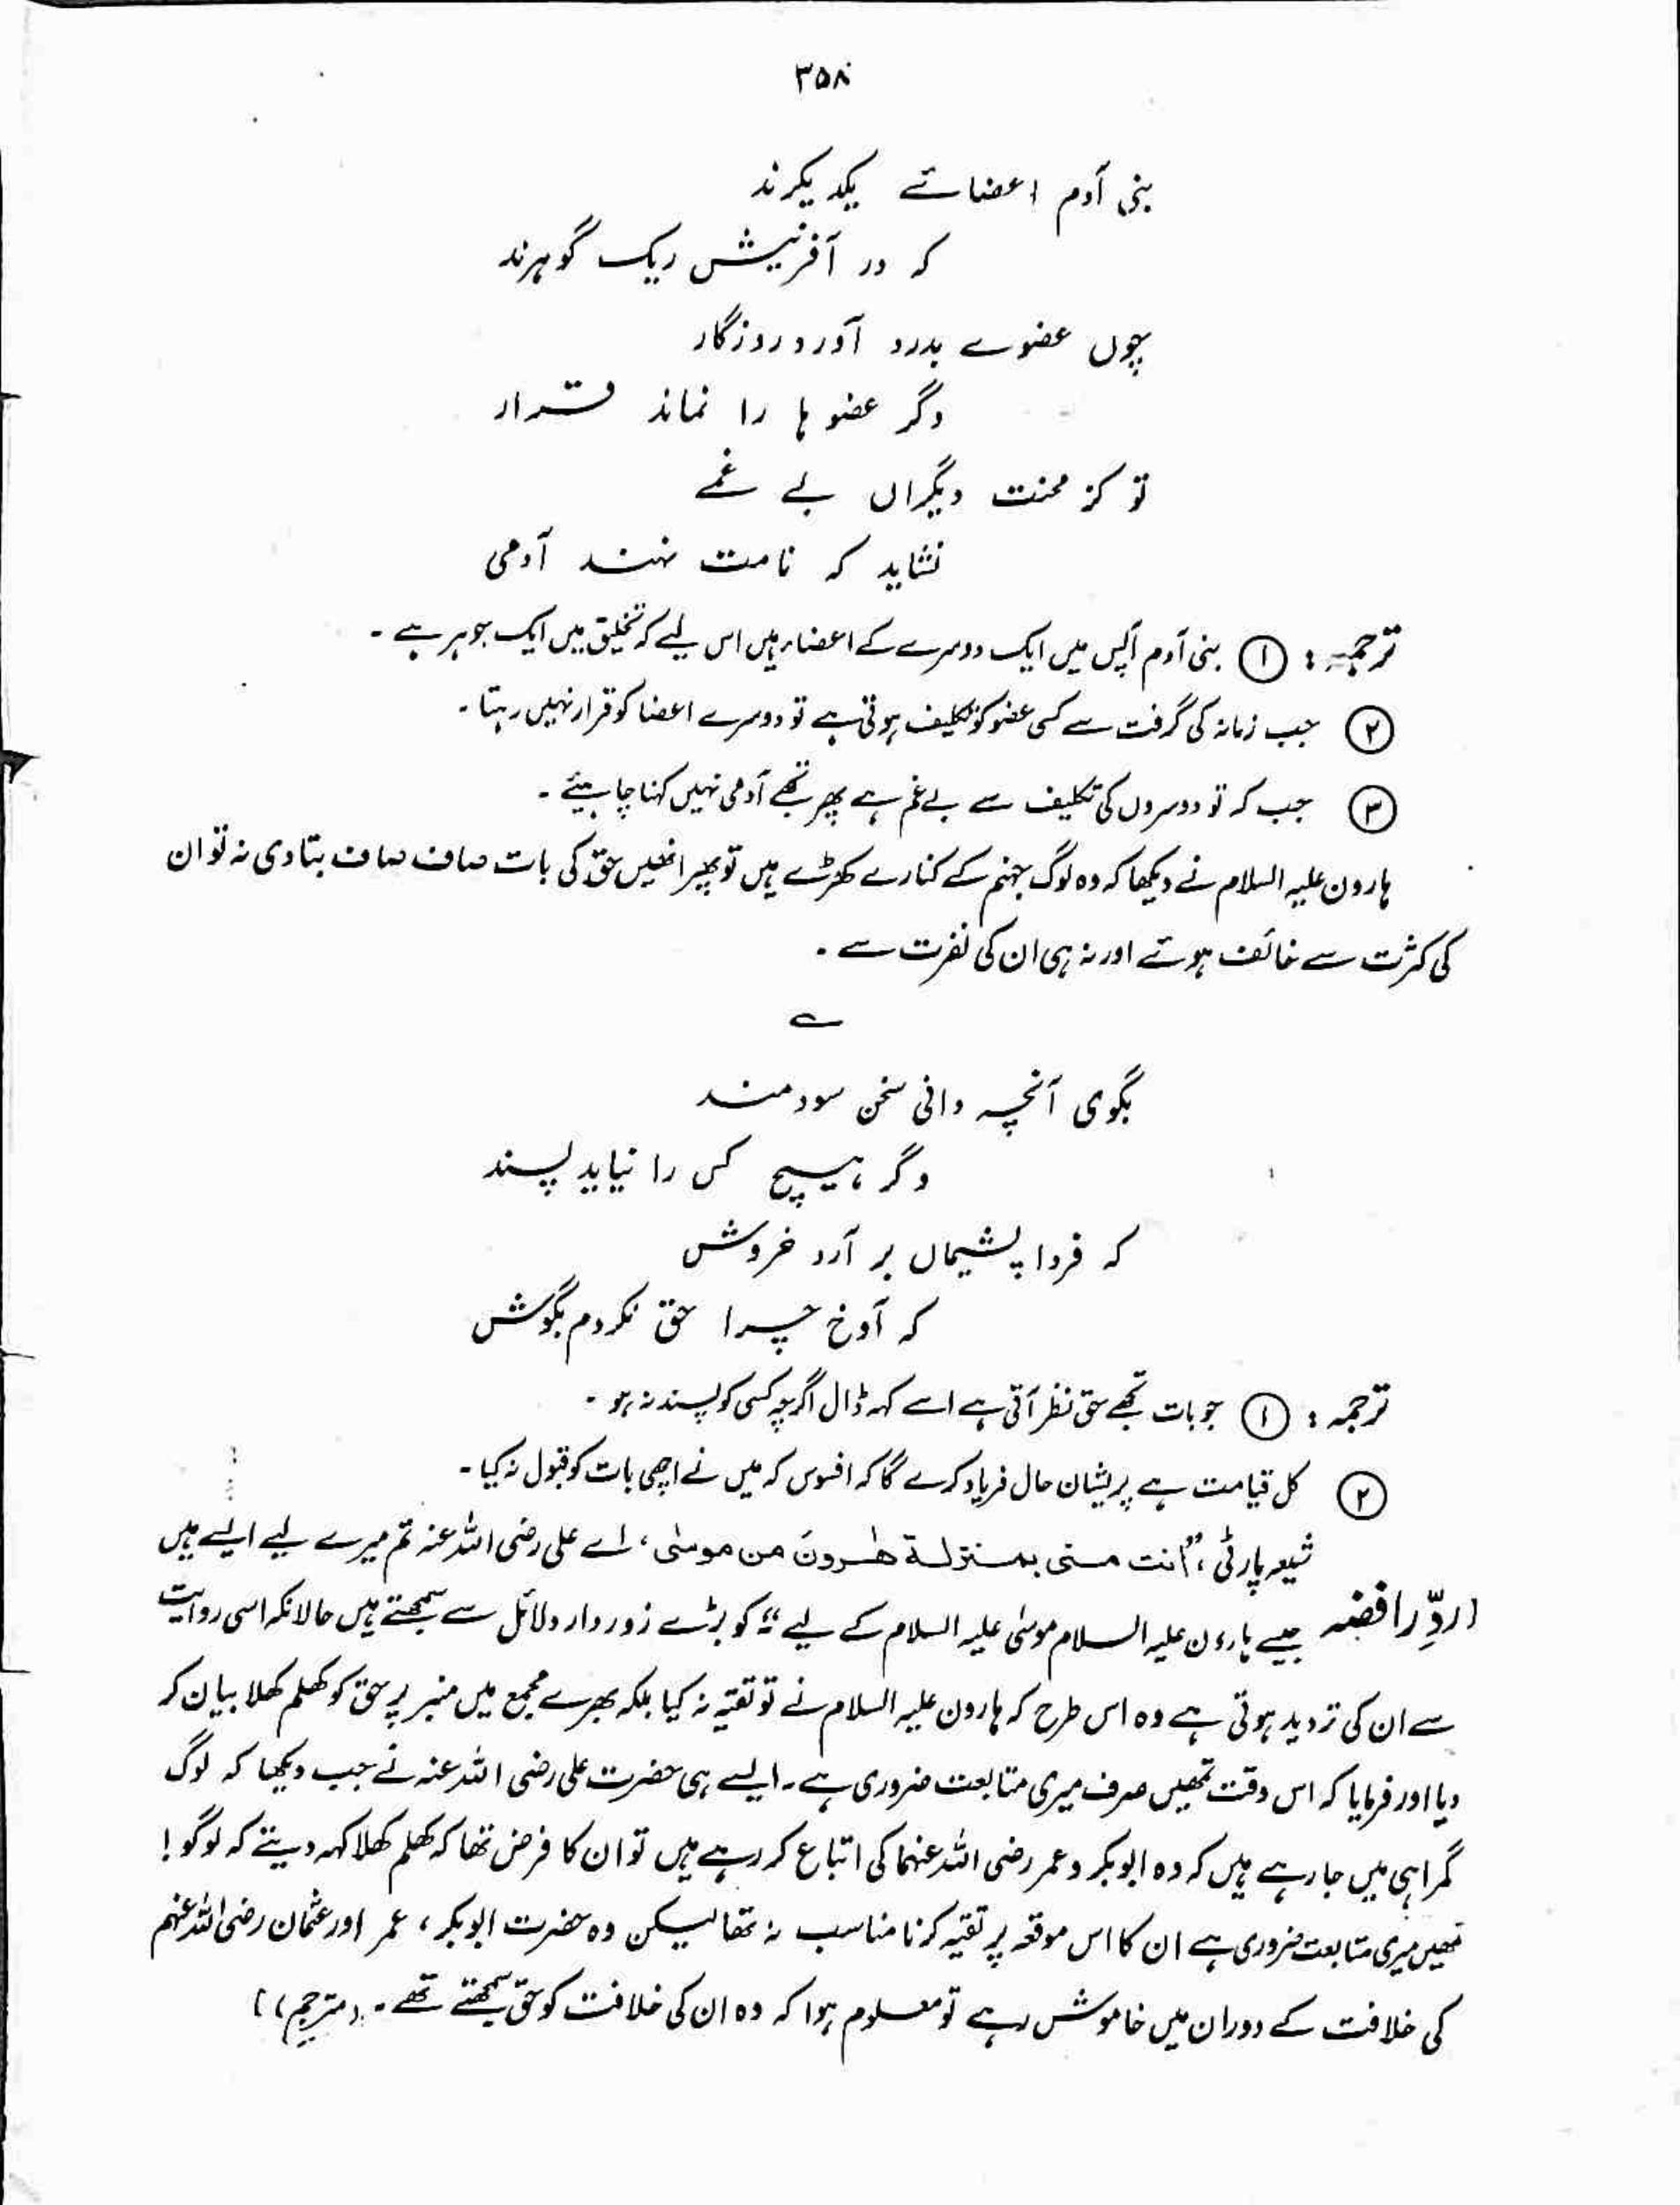 ۳۵۸
بنی آدم اعضائے یکدیگرند
کہ در آفرنیش ریک گوہرند
چوں عضوے بدرد آورد روزگار
دگر عضو ہا را نماند قرار
تو کز محنت دیگراں بے غمے
نشاید کہ نامت نہند آدمی
ترجمہ : ① بنی آدم آپس میں ایک دوسرے کے اعضاء ہیں اس لیے کہ تخلیق میں ایک جوہر ہے ۔
② جب زمانہ کی گرفت سے کسی عضو کو تکلیف ہوتی ہے تو دوسرے اعضا کو قرار نہیں رہتا ۔
③ جب کہ تو دوسروں کی تکلیف سے بے غم ہے پھر تجھے آدمی نہیں کہنا چاہیئے ۔
ہارون علیہ السلام نے دیکھا کہ وہ لوگ جہنم کے کنارے کھڑے ہیں تو پھر انھیں حق کی بات صاف صاف بتا دی نہ تو ان
کی کثرت سے خائف ہوئے اور نہ ہی ان کی نفرت سے ۔
؎
بگوی آنچہ دانی سخن سودمند
وگر ہیچ کس را نیاید پسند
کہ فردا پشیماں بر آرد خروش
کہ آوخ چرا حق نکردم بگوش
ترجمہ : ① جو بات تجھے حق نظر آتی ہے اسے کہہ ڈال اگرچہ کسی کو پسند نہ ہو ۔
② کل قیامت ہے پریشان حال فریاد کرے گا کہ افسوس کہ میں نے اچھی بات کو قبول نہ کیا ۔
شیعہ پارٹی ، "انت منی بمنزلة ھٰرونَ من موسٰی ، اے علی رضی اللہ عنہ تم میرے لیے ایسے ہیں
(ردِّ رافضہ جیسے ہارون علیہ السلام موسٰی علیہ السلام کے لیے" کو بڑے زور دار دلائل سے سمجھتے ہیں حالانکہ اسی روایت
سے ان کی تردید ہوتی ہے وہ اس طرح کہ ہارون علیہ السلام نے تو تقیّہ نہ کیا بلکہ بھرے مجمع میں منبر پر حق کو کھلم کھلا بیان کر
دیا اور فرمایا کہ اس وقت تمھیں صرف میری متابعت ضروری ہے ۔ ایسے ہی حضرت علی رضی اللہ عنہ نے جب دیکھا کہ لوگ
گمراہی میں جا رہے ہیں کہ وہ ابوبکر و عمر رضی اللہ عنہما کی اتباع کر رہے ہیں تو ان کا فرض تھا کہ کھلم کھلا کہہ دیتے کہ لوگو !
تمھیں میری متابعت ضروری ہے ان کا اس موقعہ پر تقیّہ کرنا مناسب نہ تھا لیکن وہ حضرت ابوبکر ، عمر اور عثمان رضی اللہ عنہم
کی خلافت کے دوران میں خاموش رہے تو معلوم ہوا کہ وہ ان کی خلافت کو حق سمجھتے تھے ۔ (مترجم) )